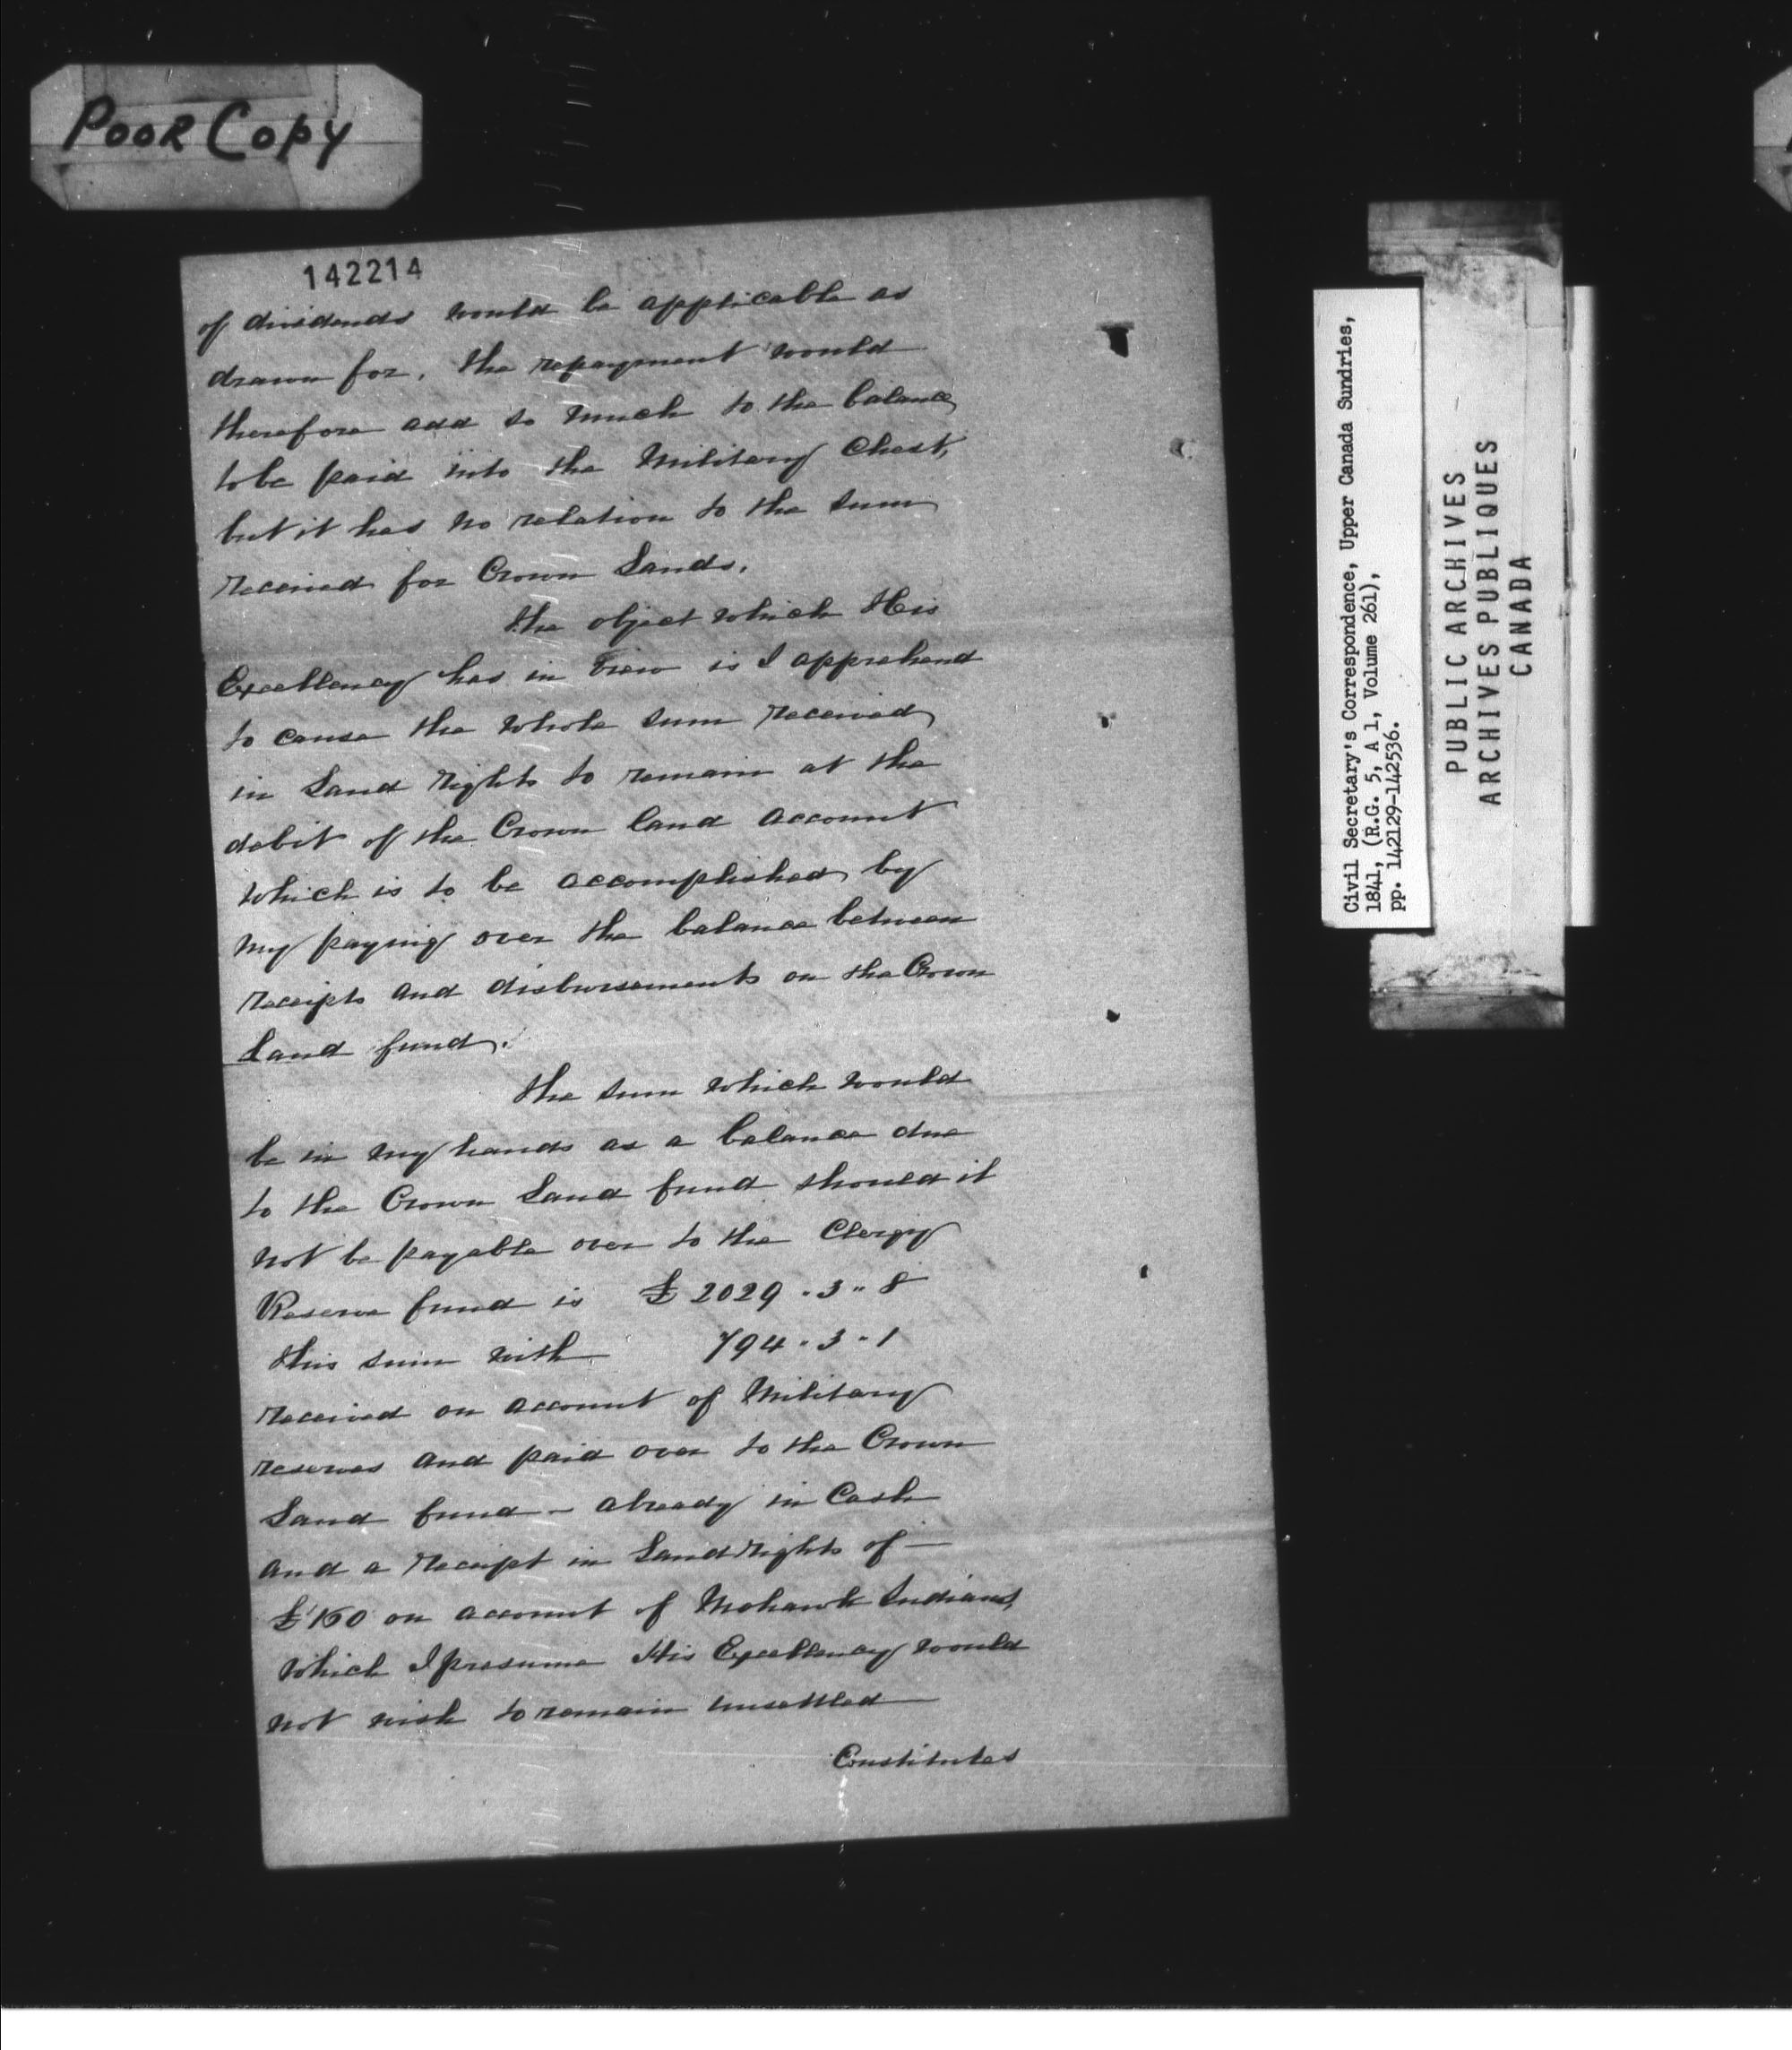 POOR COPY
142214
of dividends would be applicable as
drawn for. the repayment would
therefore add so much to the balance
to be paid into the Military Chest,
but it has no relation to the sum
received for Crown Lands.
the object which His
Excellency has in view is I apprehend
to cause the whole sum received
in Land rights to remain at the
debit of the Crown land account
which is to be accomplished by
my paying over the balance between
receipts and disbursements on the Crown
Land fund.
the sum which would
be in my hands as a balance due
to the Crown Land fund should it
not be payable over to the Clergy
Reserve fund is £ 2029 . 3 " 8
this sum with 794 . 3 - 1
received on account of Military
reserves and paid over to the Crown
Land fund - already in Cash
and a receipt in Land rights of —
£160 on account of Mohawk Indians,
which I presume His Excellency would
not wish to remain unsettled
Constitutes
Civil Secretary's Correspondence, Upper Canada Sundries,
1841, (R.G. 5, A 1, Volume 261),
pp. 142129-142536.
PUBLIC ARCHIVES
ARCHIVES PUBLIQUES
CANADA